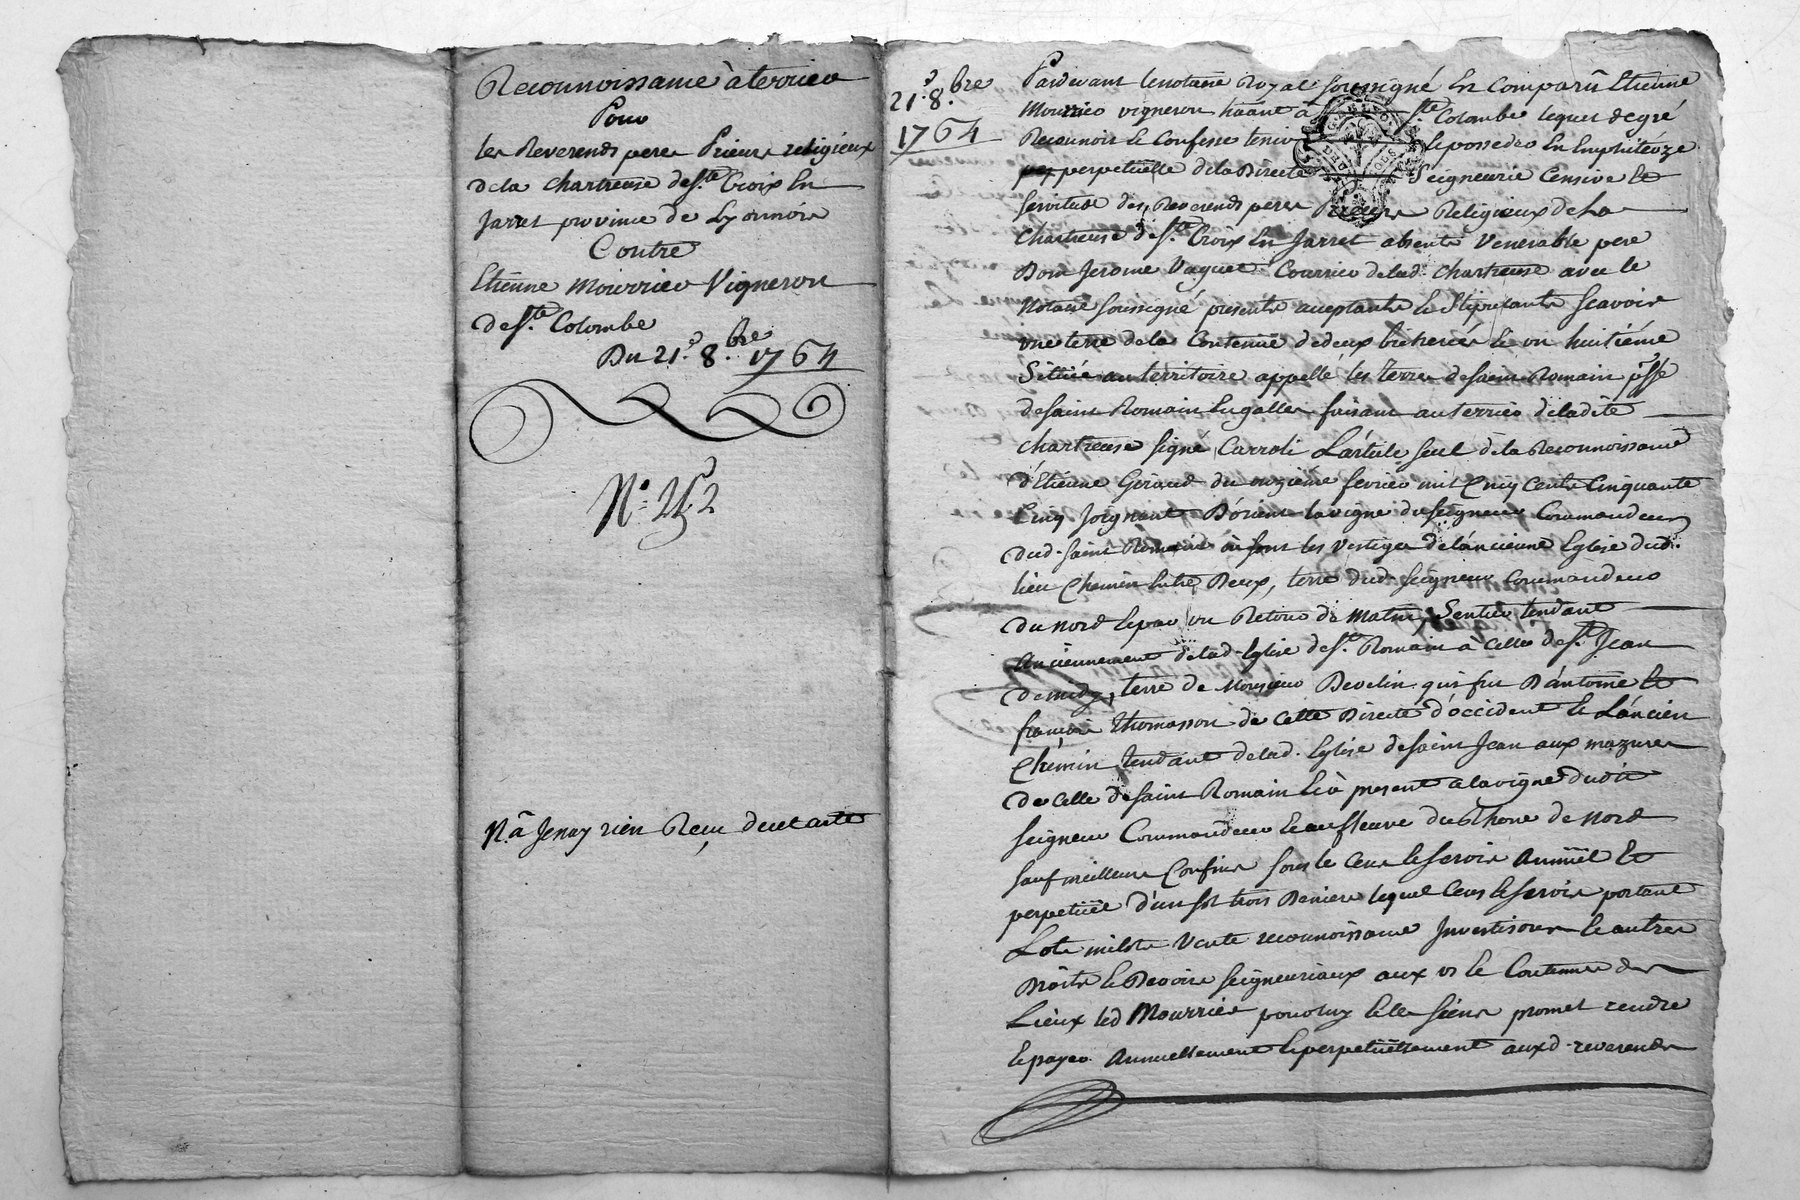 Reconnoissance à terrier
Pour
les Reverends peres Prieur religieux
de la chartreuse de ste Croix En
Jarret province de Lyonnois
Contre
Etienne Mourrier Vigneron
de ste Colombe
Du 21e 8bre 1764
No 252
Na Jenay rien Recu, decet acte
21e 8bre
1764
Pardevant le notaire Royal soussigné En Comparu Etienne
Mourrier vigneron hãant à ste Colombe lequel de gré
Reconnoit Et Confesse tenir Et posseder En Emphitéoze
perpetuelle de la Directe Seigneurie Censive Et
Servitude des Reverends peres Prieur Religieux de La
Chartreuse de ste Croix En Jarret absents Venerable pere
Dom Jerome Vaguet Courrier de lad. chartreuse avec le
Notaire soussigné presents acceptants Et Stipulants Scavoir
une terre de la Contenue de deux bicherées Et un huitiéme
Situéé au territoire appellé les terres de saint Romain psse
de saint Romain En galles faisant au terrier de ladite
chartreuse signé Carroli L'article seul de la Reconnoissance
d'Etienne Giraud du onziéme fevrier mil Cinq Cents Cinquante
Cinq Joignant D'orient la vigne du seigneur Commandeur
dud. saint Romain où sont les vestiges de l'ancienne Eglise dud.
lieu Chemin Entre Deux, terre dud. seigneur Commandeur
du nord Epar un Retour de matin, Sentier tendant
anciennement de lad. Eglise de st. Romain à Celle de st. Jean
de midy, terre de Monsieur Bevelin qui fut D'antoine Et
francois Thomasson de Cette Directe d'occident Et L'ancien
Chémin tendant de lad. Eglise de saint Jean aux mazures
de Celle de saint Romain Et à present a la vigne dudit
Seigneur Commandeur Et au fleuve du Rhone de Nord
Sauf meilleurs Confins Sous le Cens Et servis Annuel Et
perpetuel d'un sol trois Deniers lequel Cens Et servis portant
Lots milots Vente reconnoissance Investisons Et autres
Droits Et Devoirs seigneuriaux aux us Et Coutumes des
Lieux led Mourrier pour luy Et les siens promet rendre
Et payer Annuellement Et perpetuellement auxd. reverends